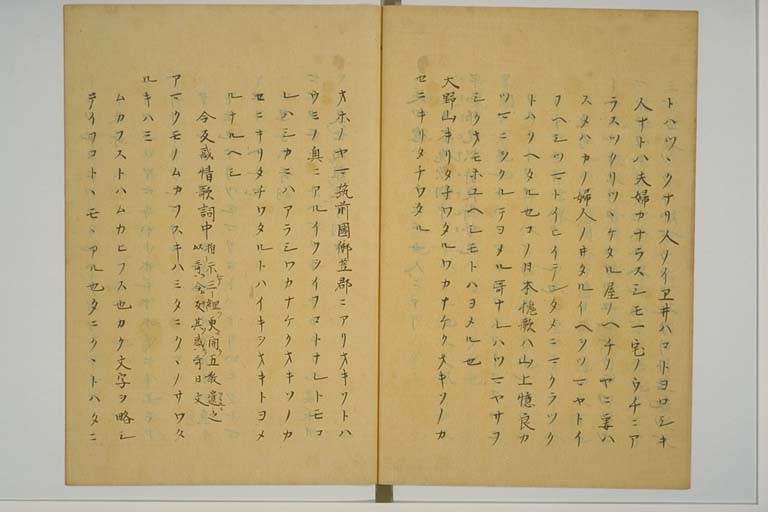 トハツヽクナリ人ノイヱ井ハコトヨロシキ
人ナトハ夫婦カナラスシモ一宅ノウチニア
ラスツクリツヽケタル屋ヲヘチノヤニ妻ハ
スメハカノ婦人ノ井タルイヘヲツマヤトイ
フヘシツマトイヒイテンタメニマクラツク
トハソヘタルセコノ日本挽歌ハ山上憶良カ
ツマニツクレテヨメル哥ナレハツマヤサヲ
シクオモホユヘシモトハヨメル也
大野山キリタチワタルワカナケクオキソノカ
セニキリタチワタル
オホノヤマ筑前國御笠郡ニアリオキソトハ
ウミノ奥ニアルイクヲイフコトナレトモコ
レハシカニハアラシワカナケクオキソノカ
セニキリタチワタルトハイキシオキトヨメ
ルナルヘシ
令反惑情歌詞中 指示三綱更開五教遺之以哥令反其惑哥曰文
アマクモノムカフスキハミタニクヽノサワタ
ルキハミ
ムカフストハムカヒフス也カク文字ヲ略シ
テイフコトヽモヽアル也タニクヽトハタニ